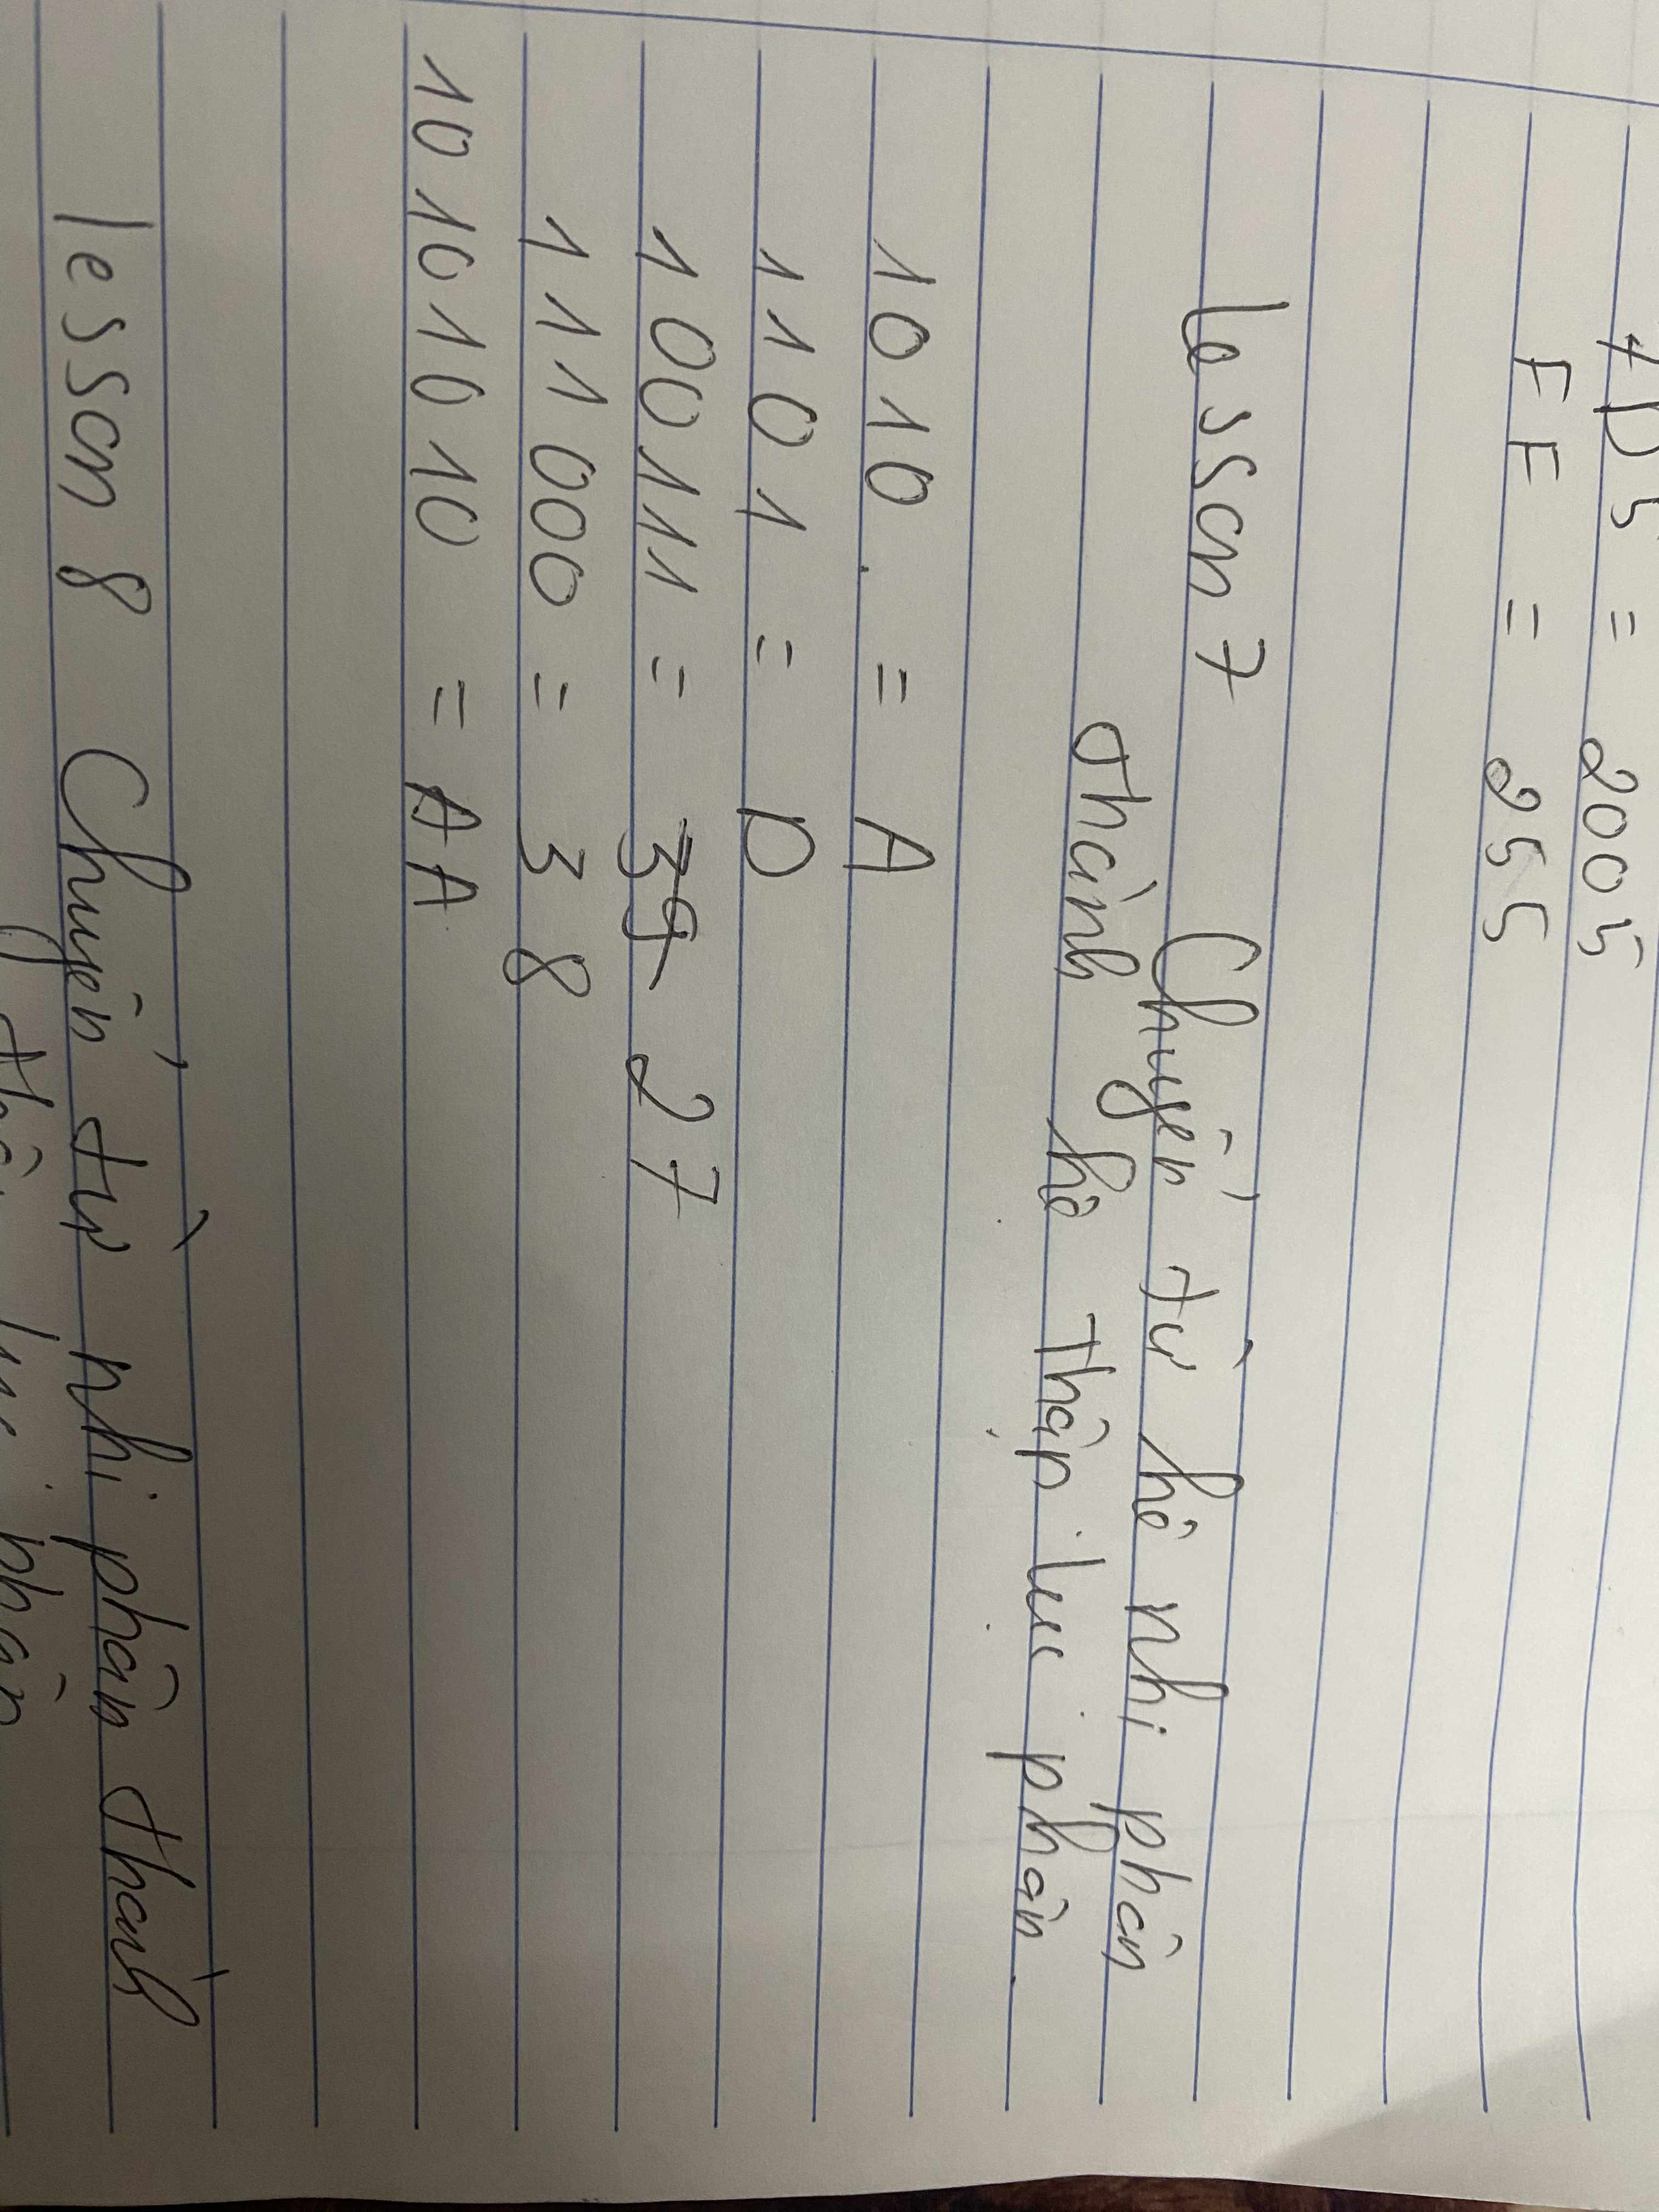 7D5 = 2005
FF = 255
lesson 7 Chuyển từ hệ nhị phân
thành hệ Thập lục phân
1010 = A
1101 = D
100111 = 39 27
111000 = 38
10101010 = AA
lesson 8 Chuyển từ nhị phân thành
lục phân